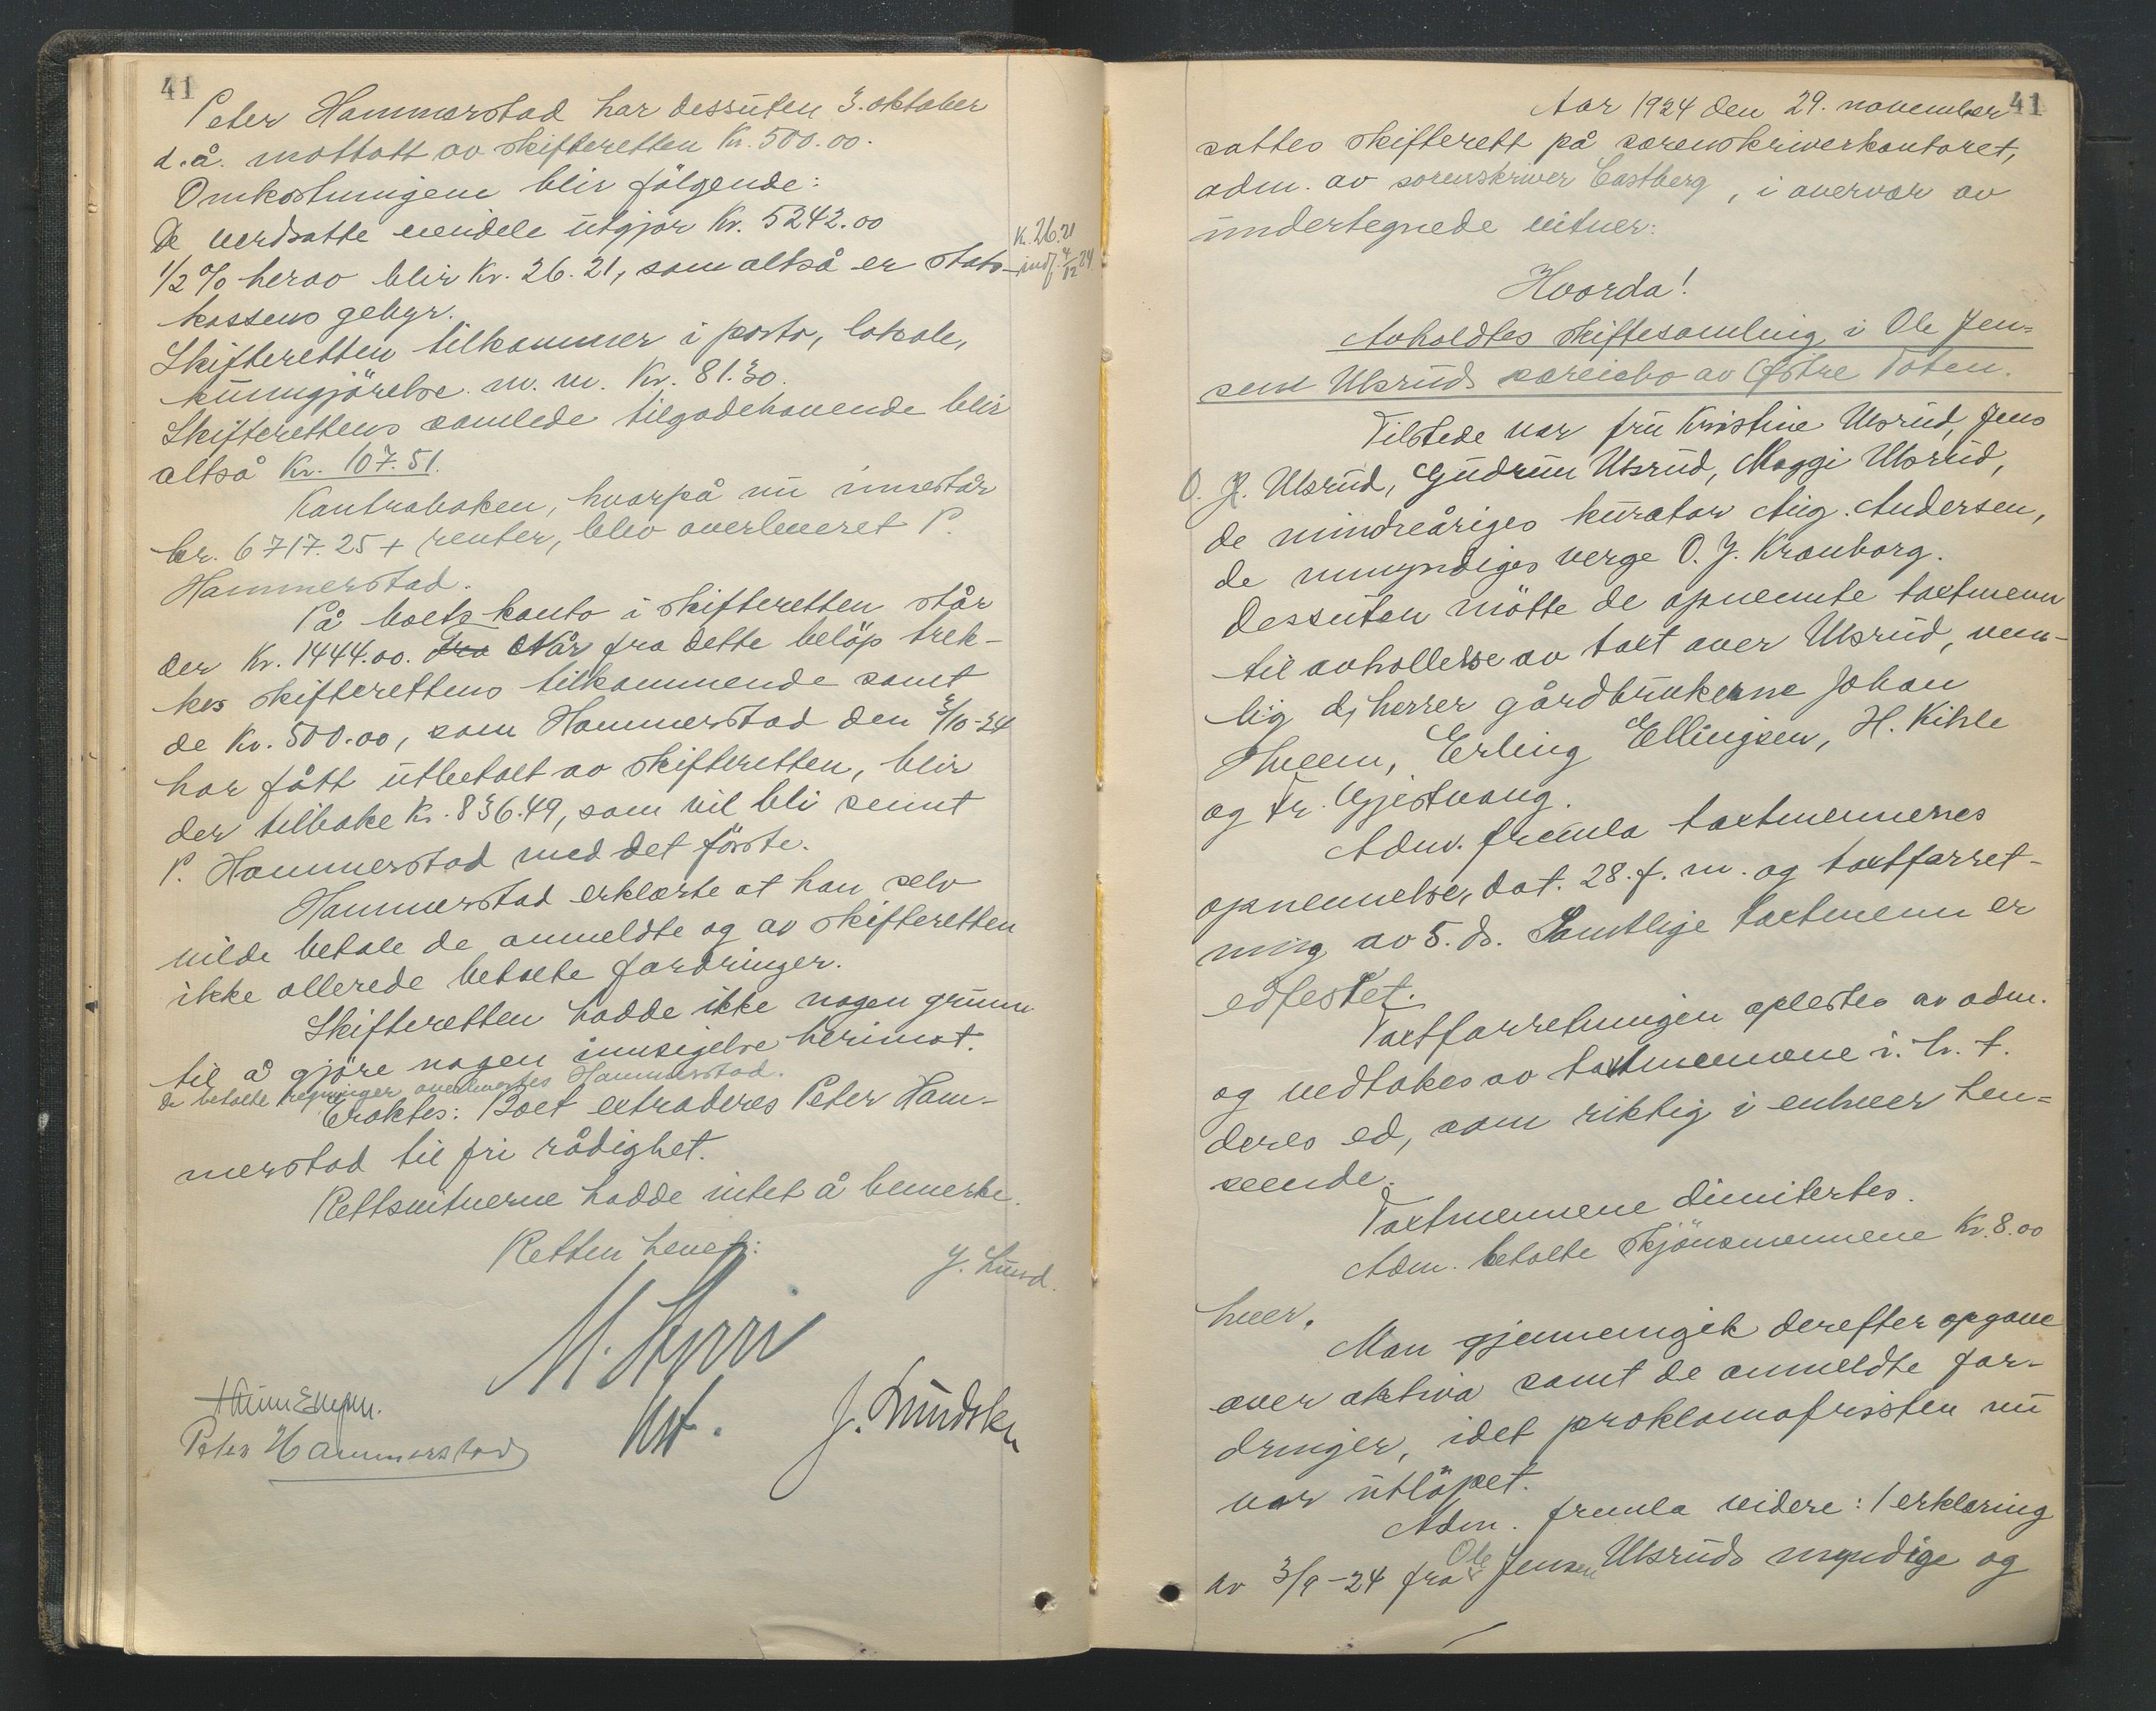 41
Peter Hammerstad har dessuten 3. oktober
d.å. mottatt av skifteretten Kr. 500.00.
Omkostningene blir følgende:
De verdsatte eiendele utgjør Kr. 5242.00
1/2 % herav blir Kr. 26.21, som altså er stats-
Kr. 26.21
indf. 4/12 24
kassens gebyr.
Skifteretten tilkommer i porto, lokale,
kunngjörelse m. m. Kr. 81.30.
Skifterettens samlede tilgodehavende blir
altså Kr. 107.51.
Kontraboken, hvorpå nu innestår
kr. 6717.25 + renter, blev overleveret P.
Hammerstad.
På boets konto i skifteretten står
der Kr. 1444.00. Fra Når fra dette beløp trek-
kes skifterettens tilkommende samt
de Kr. 500.00, som Hammerstad den 3/10-24
har fått utbetalt av skifteretten, blir
der tilbake Kr. 836.49, som vil bli sennt
P. Hammerstad med det förste.
Hammerstad erklærte at han selv
vilde betale de anmeldte og av skifteretten
ikke allerede betalte fordringer.
Skifteretten hadde ikke nogen grunn
til å gjöre nogen innsigelse herimot.
De betalte regninger overleveres Hammerstad.
Eraktes: Boet extraderes Peter Ham-
merstad til fri rådighet.
Rettsvitnerne hadde intet å bemerke.
Retten hevet:
J. Lund.
M. Hyrri
kst.
J. Lundsten
Peter Hammerstad
41
Aar 1924 den 29. november
sattes skifterett på sorenskriverkontoret,
adm. av sorenskriver Castberg, i overvær av
undertegnede vitner:
Hvorda!
Avholdtes skiftesamling i Ole Jen=
sens Ulsruds særeiebo av Østre Toten.
Tilstede var fru Kristine Ulsrud, Jens
O. H. Ulsrud, Gudrun Ulsrud, Maggi Ulsrud,
de mindreåriges kurator Aug. Andersen,
de umyndiges verge O. J. Kronborg.
Dessuten mötte de opnevnte taxtmenn
til avhollelse av taxt over Ulsrud, nem-
lig d, herrer gårdbrukerne Johan
Hveem, Erling Ellingsen, H. Kihle
og Fr. Gjestvang.
Adm. fremla taxtmennenes
opnevnelse, dat. 28. f. m. og taxtforret-
ning av 5. ds. Samtlige taxtmenn er
edfestet.
Taxtforretningen oplestes av adm.
og vedtokes av taxtmennene i. h. t.
deres ed, som riktig i enhver hen=
seende.
Taxtmennene dimitertes.
Adm. betalte skjönsmennene Kr. 8.00
hver.
Man gjennemgik derefter opgave
over aktiva samt de anmeldte for-
dringer, idet proklamafristen nu
var utlöpet.
Adm. fremla videre: 1 erklæring
av 3/9-24 fra Ole Jensen Ulsruds myndige og